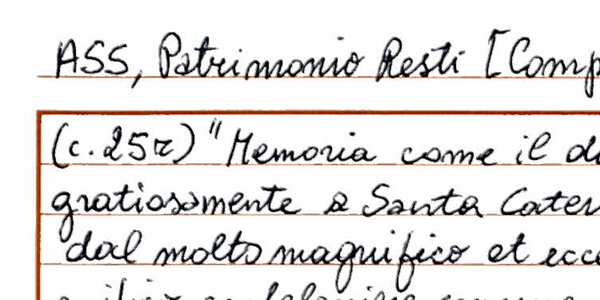 ASS, Patrimonio Resti [Comp
(c.25r) "Memoria come il d
gratiosamente a Santa Cater
dal molto magnifico et ecce